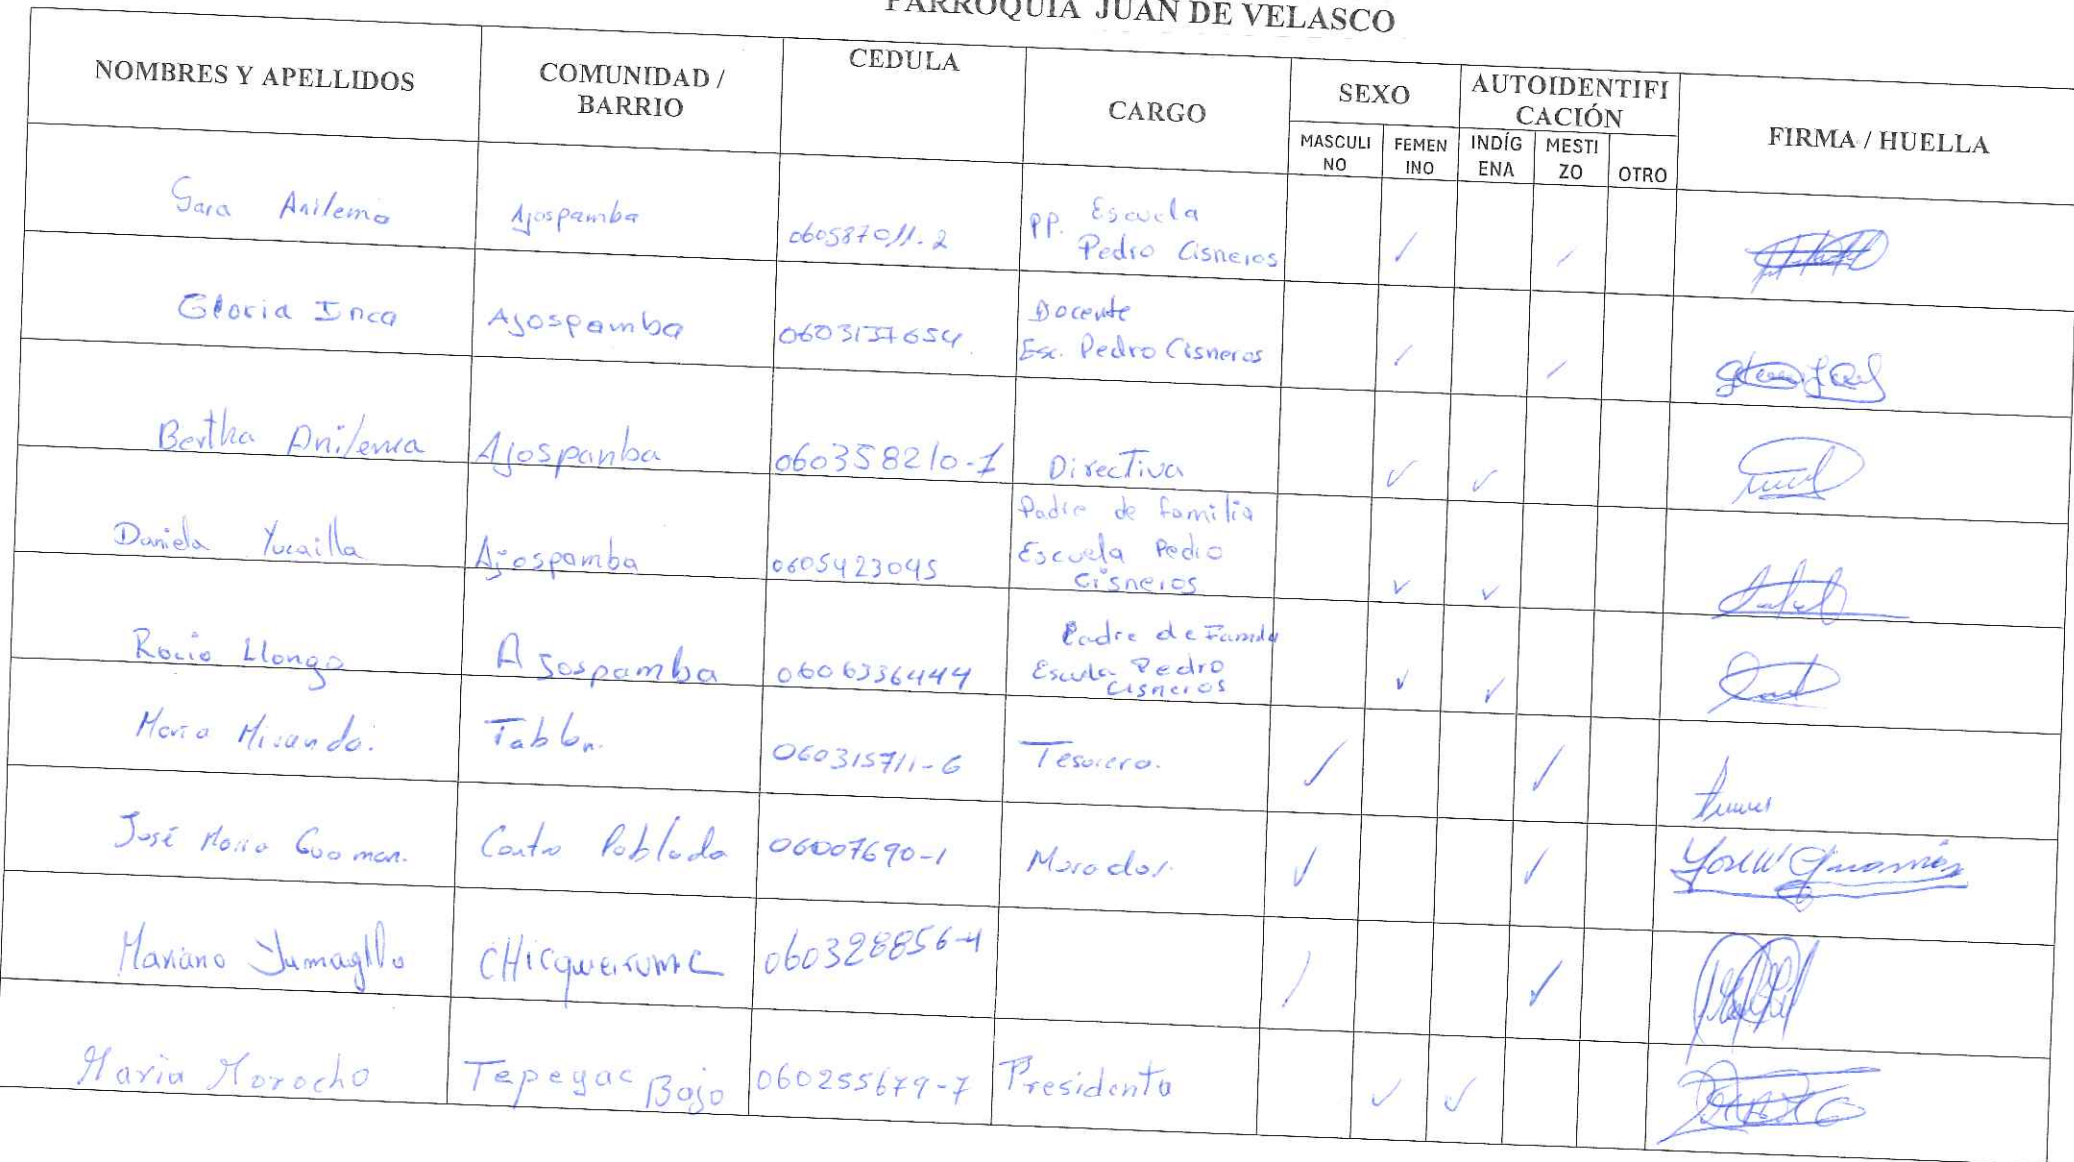 PARROQUIA JUAN DE VELASCO
NOMBRES Y APELLIDOS
COMUNIDAD /
BARRIO
CEDULA
CARGO
SEXO
AUTOIDENTIFI
CACIÓN
FIRMA / HUELLA
MASCULI
NO
FEMEN
INO
INDÍG
ENA
MESTI
ZO
OTRO
Sara Anilema
Ajospamba
060587011-2
PP. Escuela
Pedro Cisneros
Gloria Inca
Ajospamba
0603137654
Docente
Esc. Pedro Cisneros
Bertha Anilema
Ajospanba
060358210-1
Directiva
Daniela Yucailla
Ajospamba
0605423045
Padre de familia
Escuela Pedro
Cisneros
Rocio Llongo
Ajospamba
0606336444
Padre de Familia
Escula Pedro
Cisneros
Mario Miranda.
060315711-6
Tesorero.
José Maria Guaman.
Centro Poblado
06007690-1
Morador.
José M Guamán
Mariano
060328856-4
Maria Morocho
Tepeyac Bajo
060255679-7
Presidenta